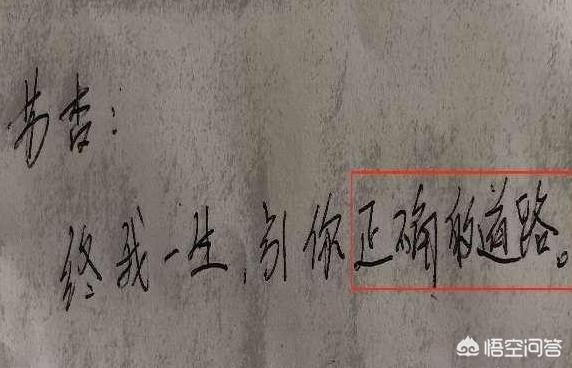 芳杏：
终我一生，引你正确的道路。
悟空问答